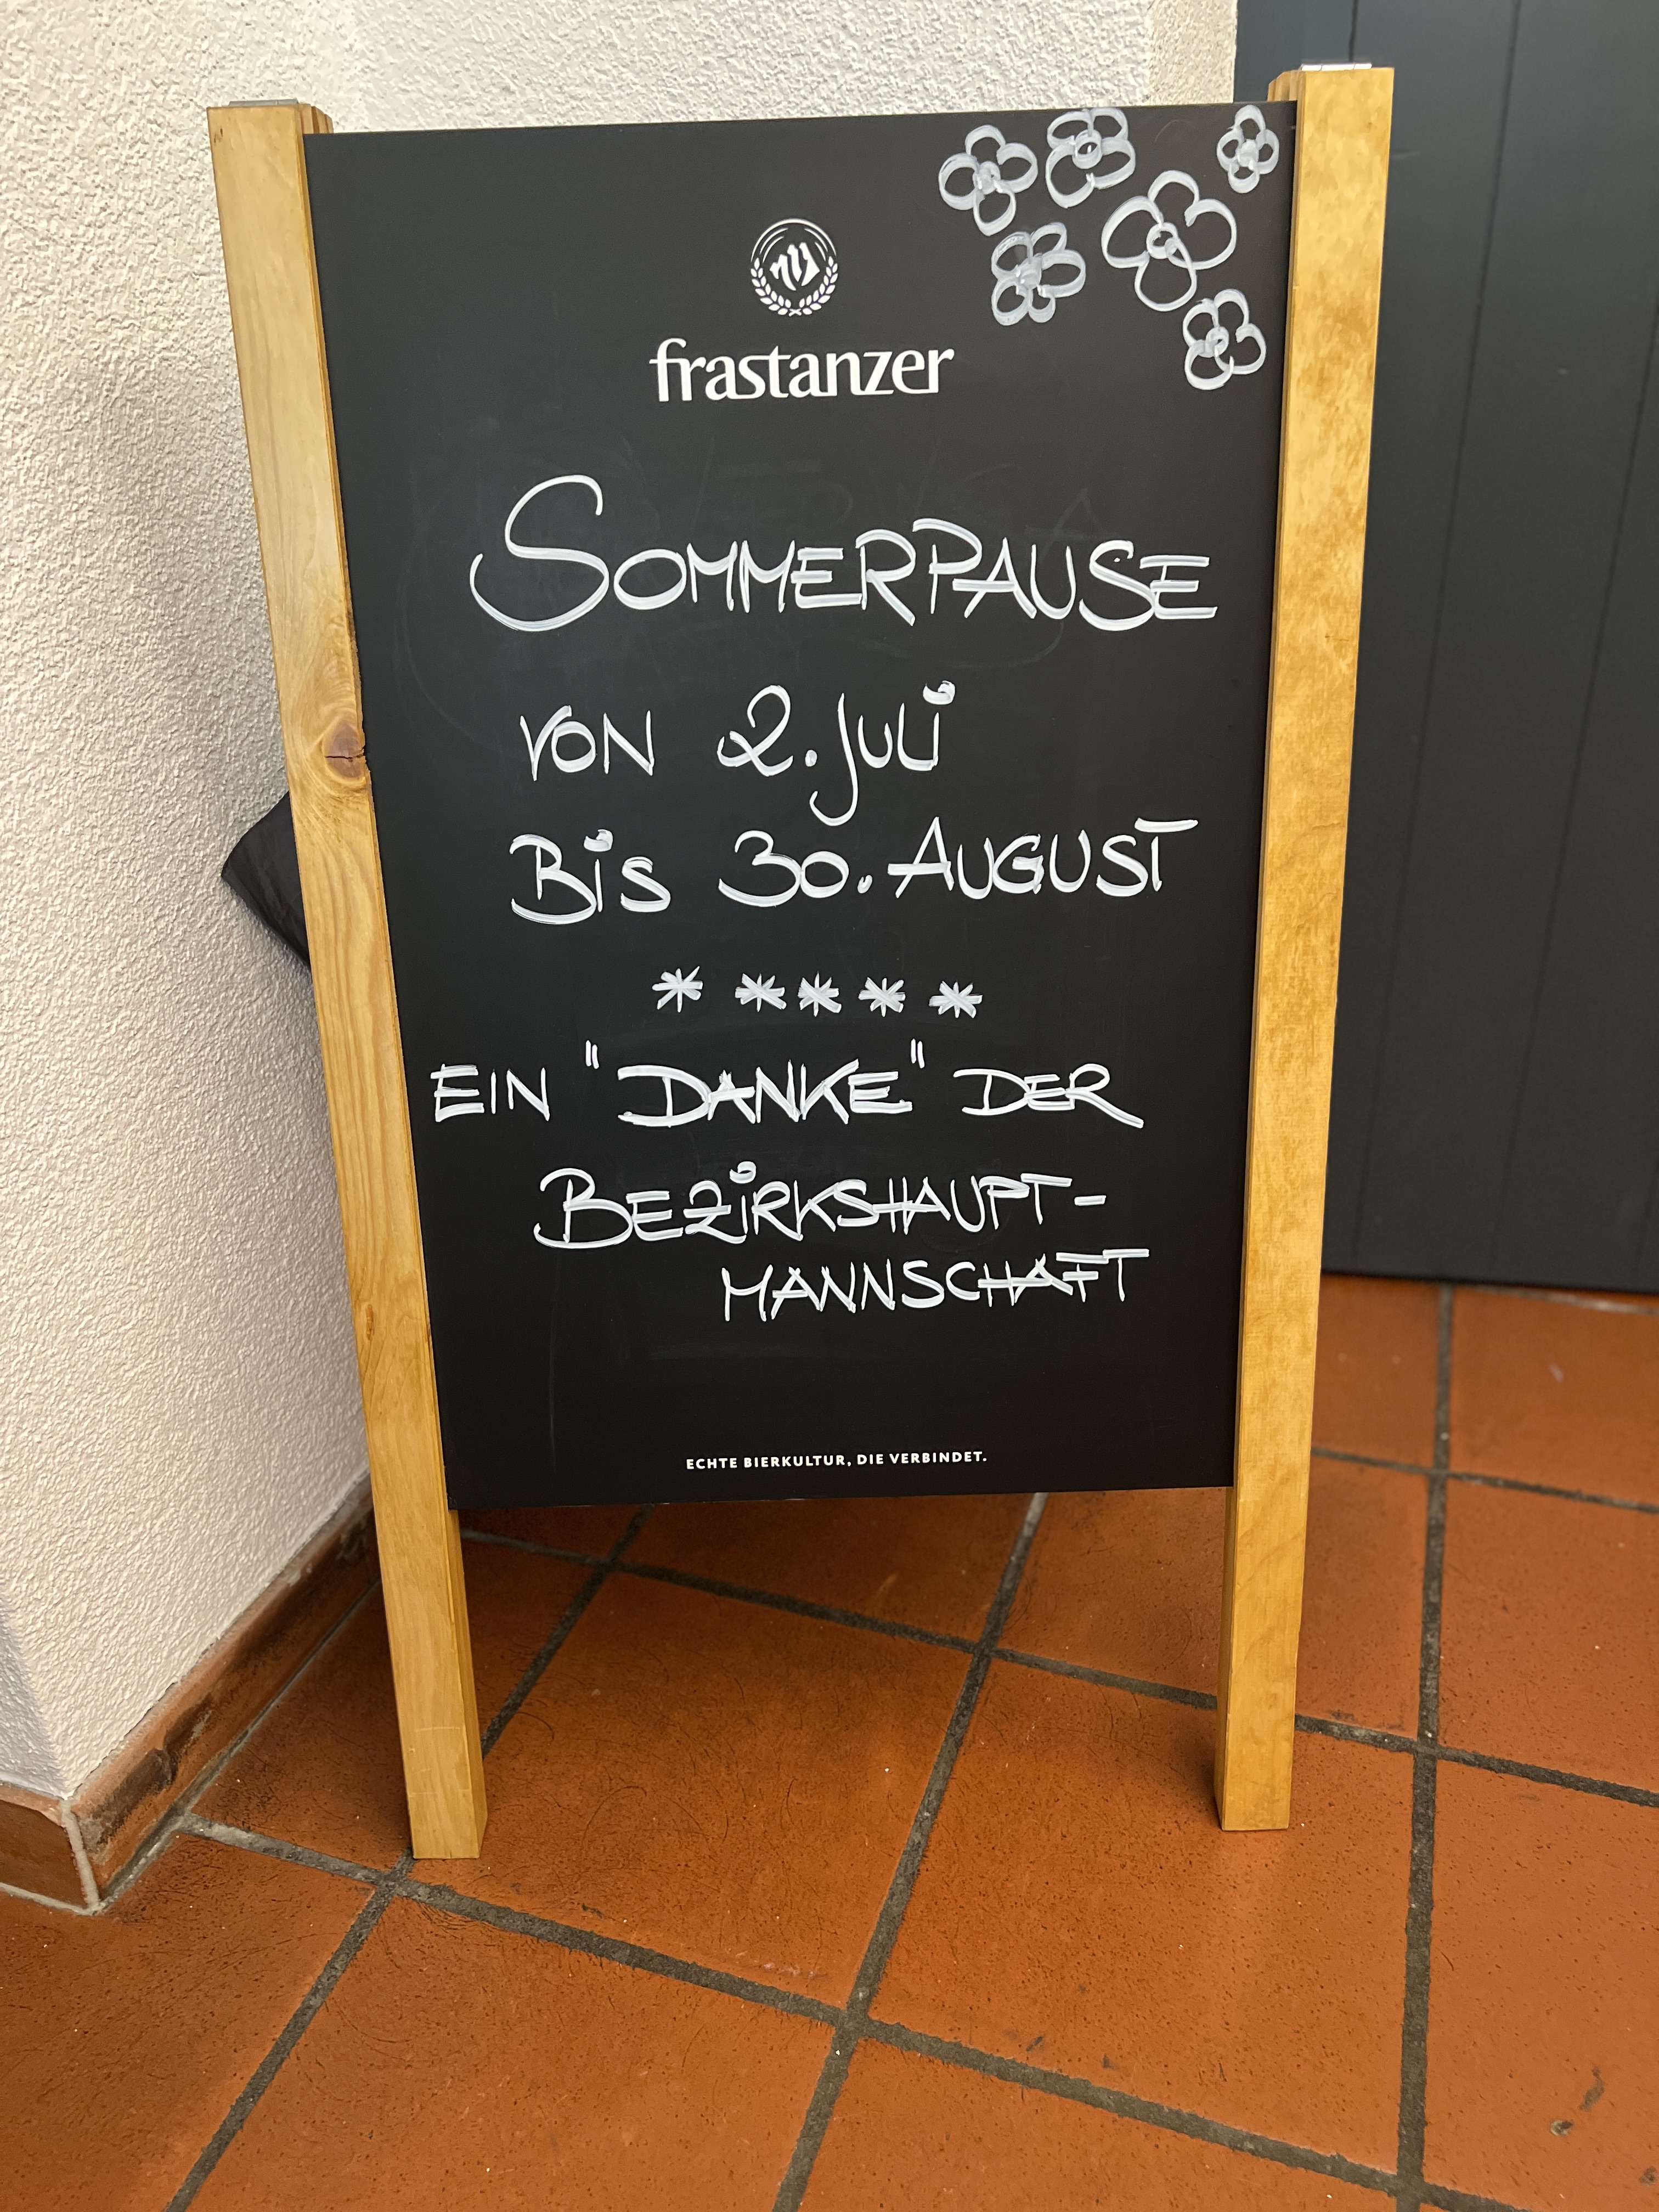 frastanzer
SOMMERPAUSE
VON 2. JULI
BIS 30. AUGUST
* * * * *
EIN "DANKE" DER
BEZIRKSHAUPT-
MANNSCHAFT
ECHTE BIERKULTUR, DIE VERBINDET.